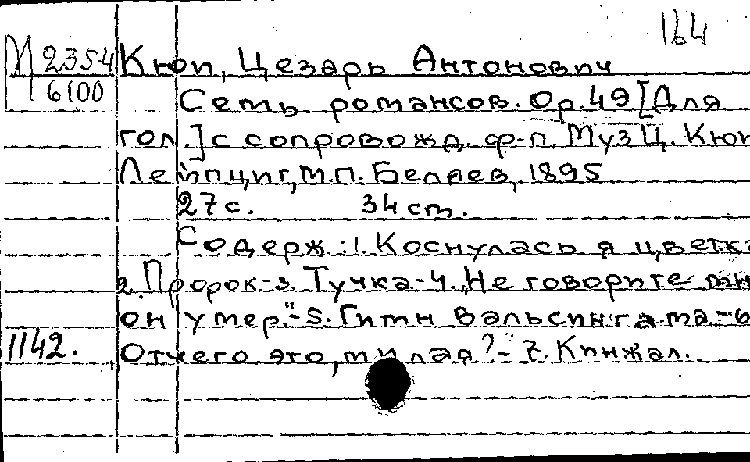 164
М 2354 Кюи, Цезарь Антонович
6100 Семь романсов. Ор. 49 [Для
гол.] с сопровожд. ф-п. Муз Ц. Кюи
Лейпциг, М.П. Беляев, 1895
27 с. 34 cm.
Содерж.: 1. Коснулась я цветка
2. Пророк-3. Тучка-4. „Не говорите мн
он умер."-5. Гимн Вальсингама.-6
1142. Отчего это, милая?-7. Кинжал.